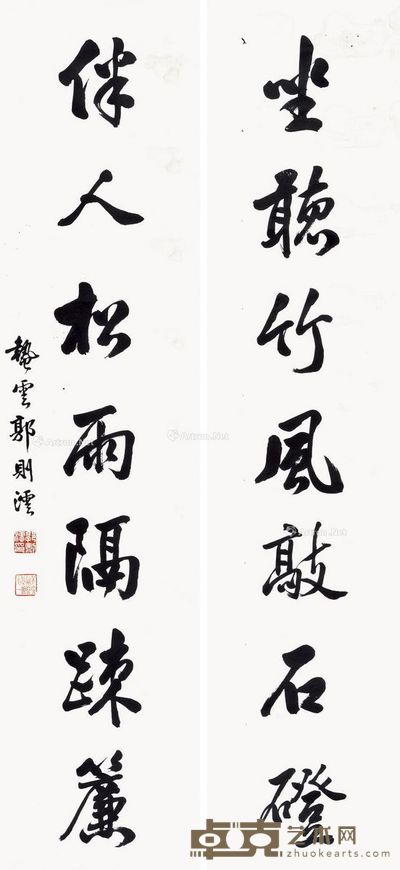 坐聽竹風敲石磴
伴人松雨隔疎簾
蟄雲郭則澐
卓克艺术网
zhuokearts.com
Artron.Net